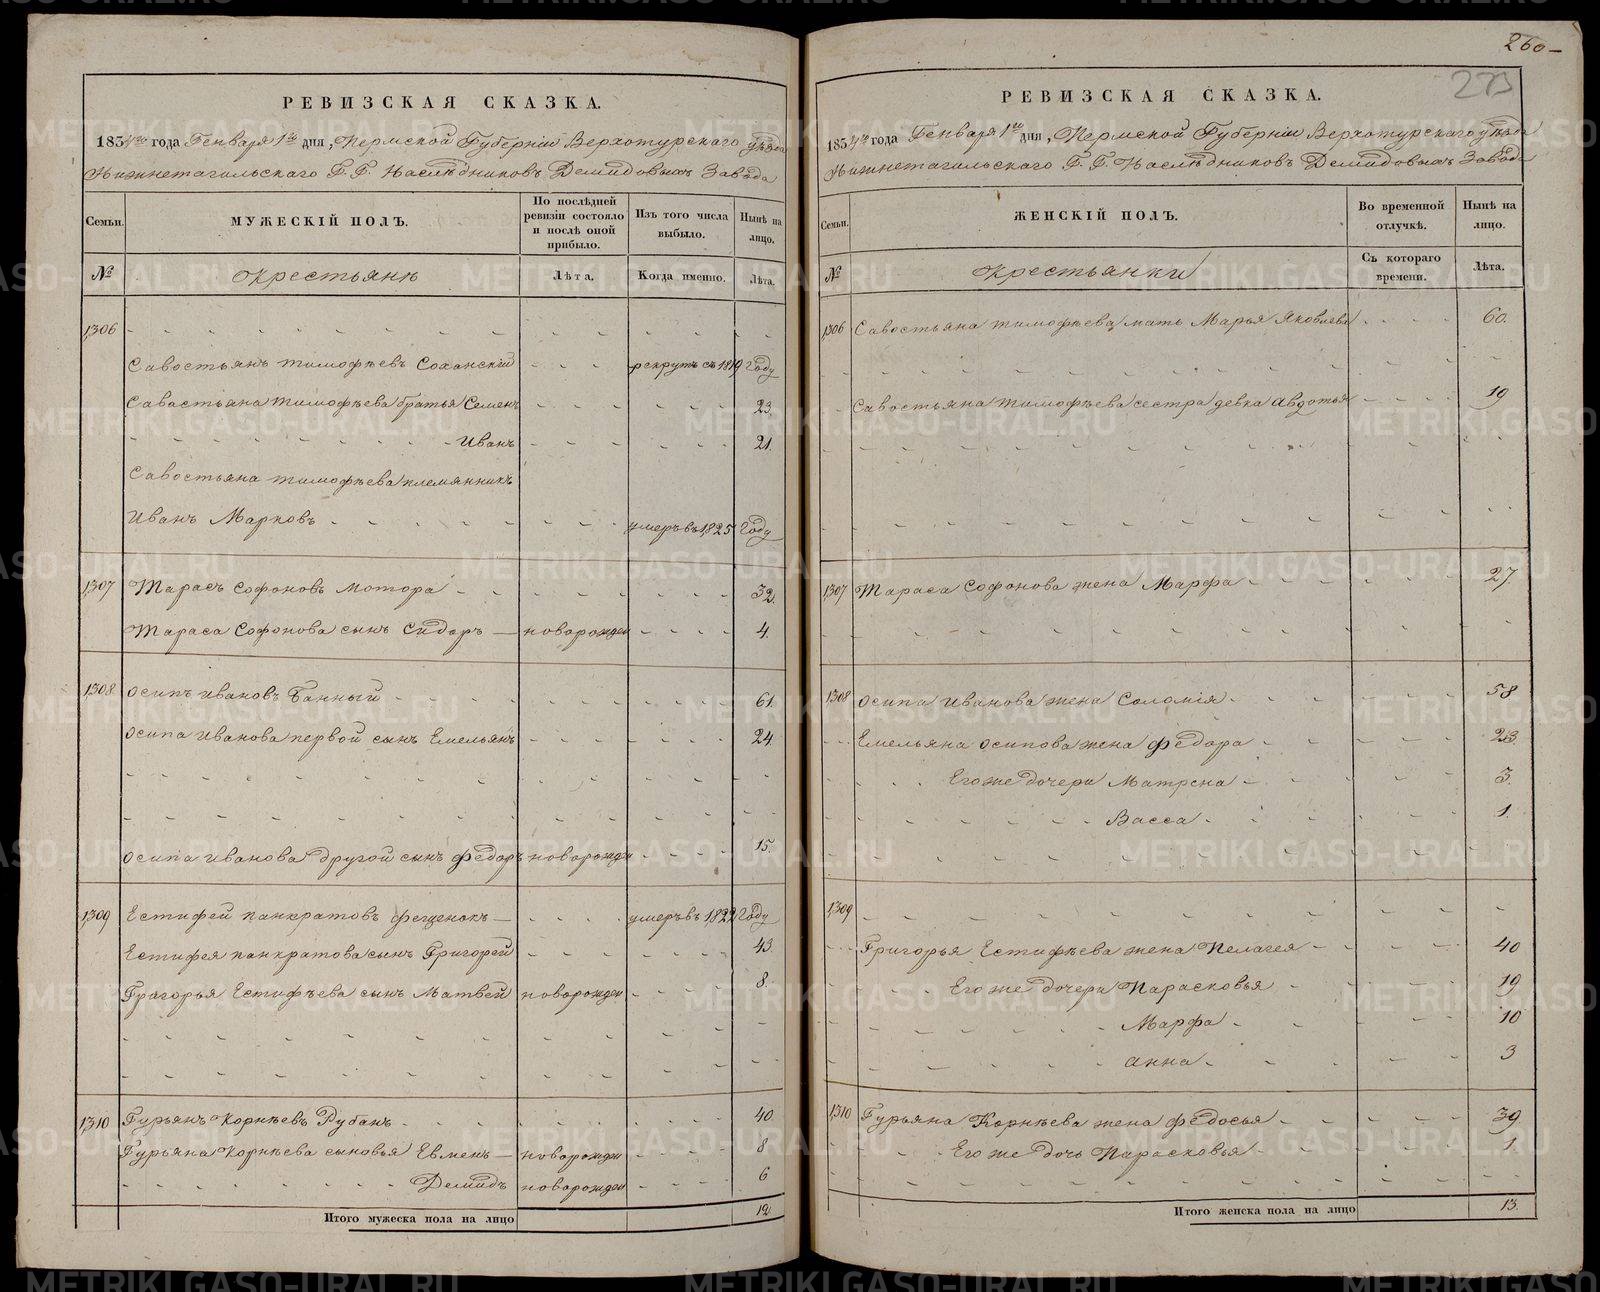 260
273
РЕВИЗСКАЯ СКАЗКА.
1834го года Генваря 1го дня, Пермской Губернiи Верхотурскаго уѣзда
Нижнетагильскаго Г. Г. Наслѣдниковъ Демидовыхъ Завода
Семьи. МУЖЕСКІЙ ПОЛЪ. По послѣдней ревизіи состояло и послѣ оной прибыло. Изъ того числа выбыло. Нынѣ на лицо.
№ Окрестьянѣ Лѣта. Когда именно. Лѣта.
1306
Савостьянъ Тимофѣевъ Соханскiй рекрутъ съ 1819 году
Савастьяна Тимофѣева братья Семенъ 23.
Иванъ 21.
Савостьяна Тимофѣева племянникъ
Иванъ Марковъ умеръ въ 1825 году
1307 Тарасъ Софоновъ Мотора 32.
Тараса Софонова сынъ Сидоръ новорожден 4.
1308 Осипъ Ивановъ Банный 61.
Осипа Иванова первой сынъ Емельянъ 24.
Осипа Иванова другой сынъ Федоръ новорожден 15
1309 Естифей Панкратовъ Фещенокъ умеръ въ 1822 году
Естифея Панкратова сынъ Григорей 43.
Григорья Естифѣева сынъ Матвей новорожден 8.
1310 Гурьянъ Корнѣевъ Рубанъ 40
Гурьяна Корнѣева сыновья Евменъ новорожден 8
Демидъ новорожден 6
Итого мужеска пола на лицо 12
РЕВИЗСКАЯ СКАЗКА.
1834го года Генваря 1го дня, Пермской Губернiи Верхотурскаго уѣзда
Нижнетагильскаго Г. Г. Наслѣдниковъ Демидовыхъ Завода
Семьи. ЖЕНСКІЙ ПОЛЪ. Во временной отлучкѣ. Нынѣ на лицо.
№ Окрестьянки Съ котораго времени. Лѣта.
1306 Савостьяна Тимофѣева мать Марья Яковлева 60.
Савостьяна Тимофѣева сестра девка Авдотья 19
1307 Тараса Софонова жена Марфа 27.
1308 Осипа Иванова жена Соломiя 58
Емельяна Осипова жена Федора 23.
Его же дочери Матрена 3.
Васса 1.
1309
Григорья Естифѣева жена Пелагея 40
Его же дочери Парасковья 19
Марфа 10
Анна 3
1310 Гурьяна Корнѣева жена Федосья 39
Его же дочь Парасковья 1
Итого женска пола на лицо 13.
METRIKI.GASO-URAL.RU